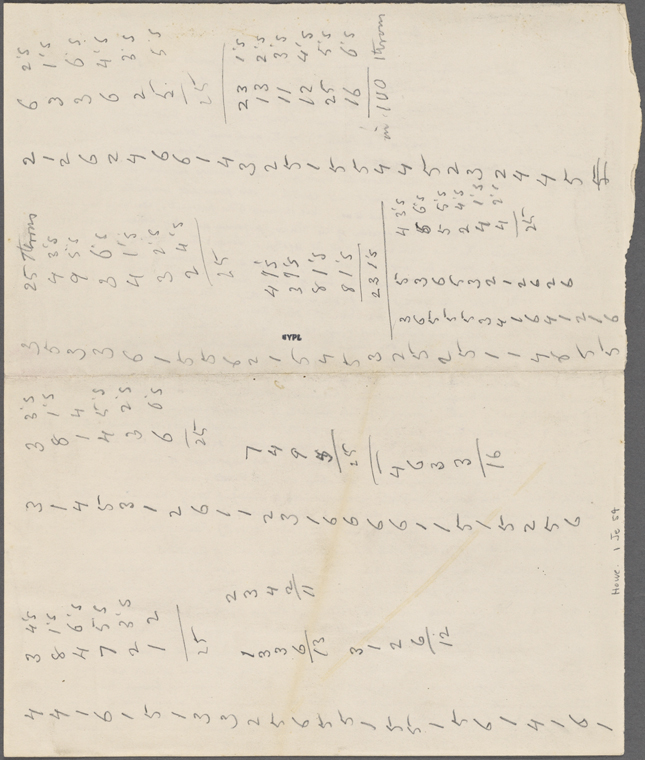 4
4
1
6
1
5
1
3
3
2
5
6
5
5
1
5
5
1
5
6
1
4
1
6
1
3 4's
8 1's
4 6's
7 5's
2 3's
1 2
25
1
3
3
6
13
2
3
4
2
11
3
1
2
6
12
3
1
4
5
3
1
2
6
1
1
2
3
1
6
6
6
6
1
1
5
1
5
2
5
6
3 3's
8 1's
1 4
4 5's
3 2's
6 6's
25
7
4
9
5
25
4
6
3
3
16
3
5
3
3
6
1
5
5
6
2
1
5
4
5
3
2
5
2
5
1
1
4
6
5
5
25 Throws
4 3's
9 5's
3 6's
4 1's
3 2's
2 4's
25
4 1's
3 1's
8 1's
8 1's
23 1's
3 5
6 3
5 6
5 5
5 3
3 2
4 1
1 2
6 6
4 2
1 6
2
1
6
4 3's
6 6's
5 5's
2 4's
4 1's
4 2's
25
2
1
2
6
2
4
6
6
1
4
3
2
5
1
5
5
4
4
5
2
3
2
4
4
5
5
6 2's
3 1's
3 6's
6 4's
2 3's
5 5's
25
23 1's
13 2's
11 3's
12 4's
25 5's
16 6's
in 100 throws
NYPL